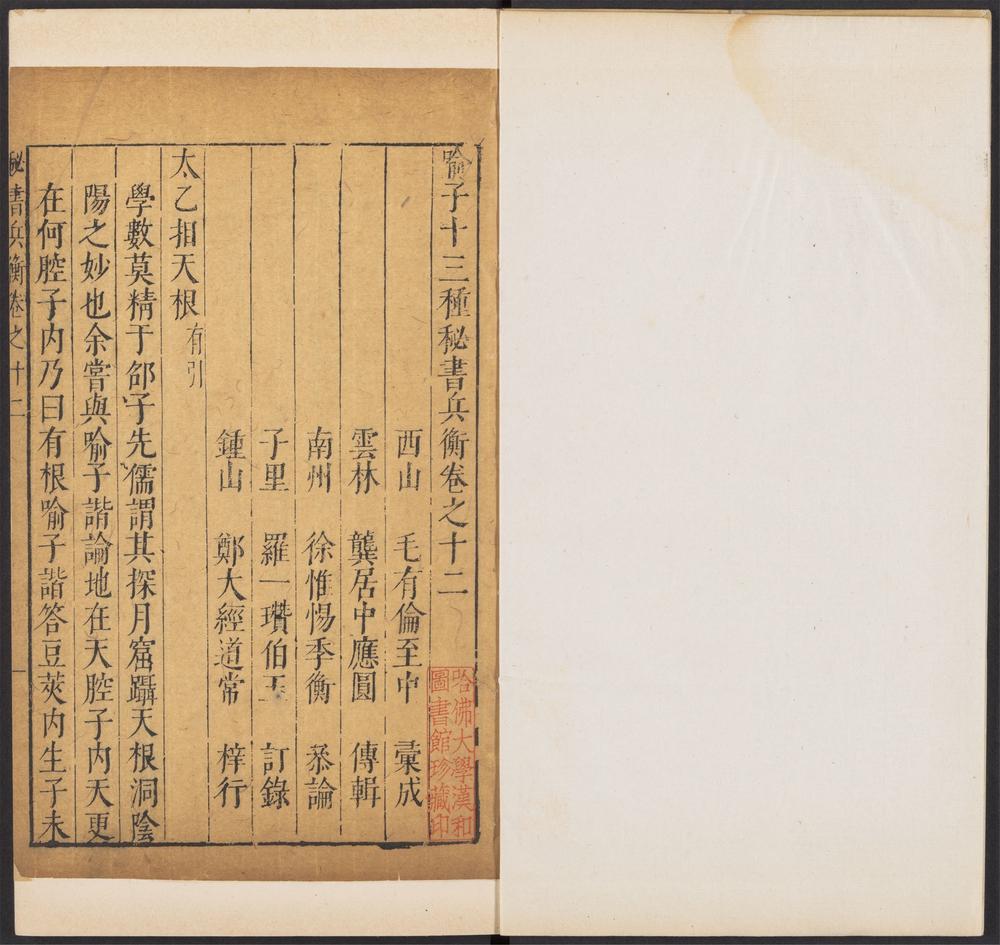 喻子十三種秘書兵衡卷之十二
西山 毛有倫至中 彙成
雲林 龔居中應圓 傳輯
南州 徐惟惕季衡 叅論
子里 羅一瓚伯玉 訂錄
鍾山 鄭大經道常 梓行
太乙抇天根 有引
學數莫精于邵子先儒謂其探月窟躡天根洞陰
陽之妙也余嘗與喻子諧論地在天腔子內天更
在何腔子內乃曰有根喻子諧答豆莢內生子未
秘書兵衡卷之十二 一
哈佛大學漢和
圖書館珍藏印